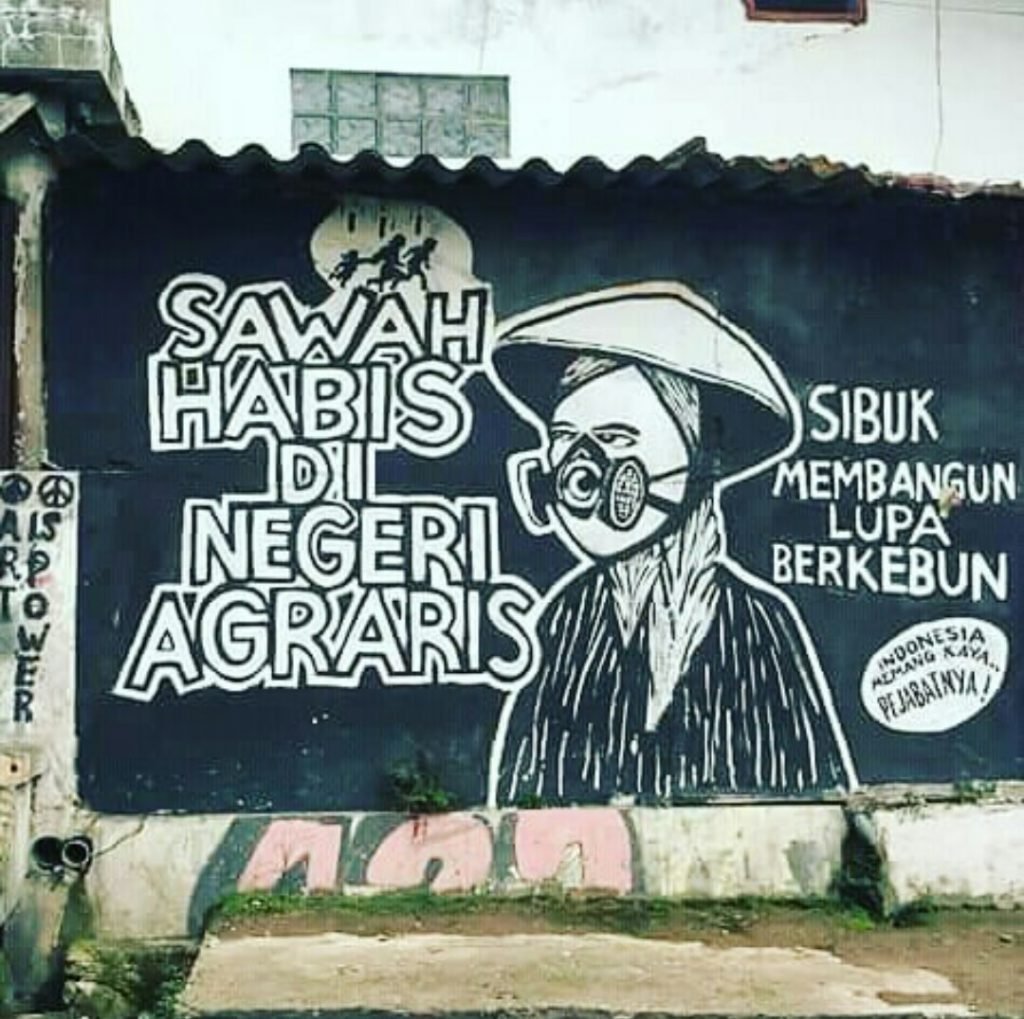 SAWAH
HABIS
DI
NEGERI
AGRARIS
SIBUK
MEMBANGUN
LUPA
BERKEBUN
INDONESIA
MEMANG KAYA..
PEJABATNYA!
ART
IS POWER